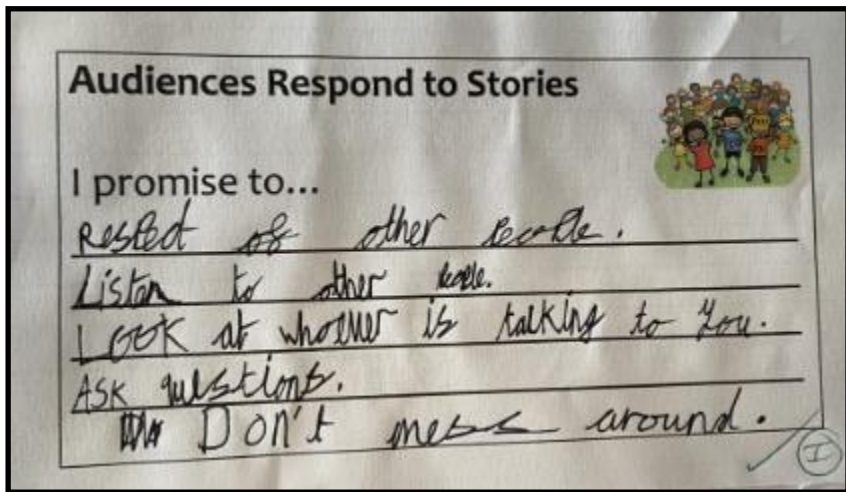 Audiences Respond to Stories
I promise to...
Respect of other people.
Listen to other people.
Look at whoever is talking to you.
Ask questions.
Don't mess around.
I